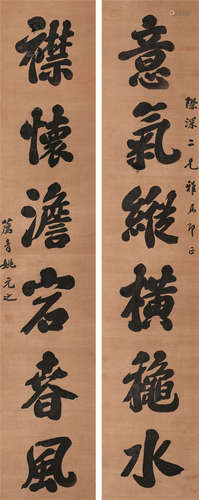 意氣縱橫穐水
際深二兄雅屬即正
襟懷澹宕春風
薦青姚元之